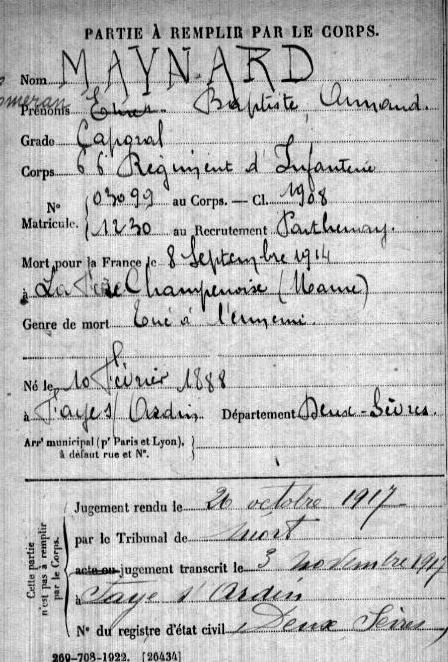 PARTIE À REMPLIR PAR LE CORPS.
Nom MAYNARD
Prénoms Baptiste Armand.
Grade Caporal
Corps 66e Régiment d'Infanterie
N° Matricule. { 03099 au Corps. — Cl. 1908
1230 au Recrutement Parthenay.
Mort pour la France le 8 Septembre 1914
à La Fère Champenoise (Marne)
Genre de mort Tué à l'ennemi.
Né le 10 Février 1888
à Faye s/ Ardin Département Deux-Sèvres.
Arrt municipal (pr Paris et Lyon),
à défaut rue et N°.
Cette partie n'est pas à remplir par le Corps.
Jugement rendu le 26 octobre 1917
par le Tribunal de Niort
acte ou jugement transcrit le 3 novembre 1917
à Faye s/ Ardin
N° du registre d'état civil Deux Sèvres
269-708-1922. [26434]